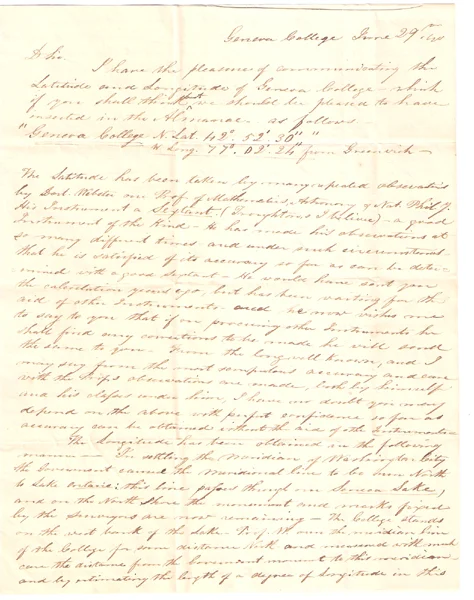 Geneva College June 29th
D Sir.
I have the pleasure of communicating the
Latitude and Longitude of Geneva College which
if you shall think fit we should be pleased to have
inserted in the Almanac as follows
"Geneva College N. Lat. 42°. 52'. 30" "
W Long. 77°. 02'. 24" from Greenwich —
The Latitude has been taken by many repeated observations
by Doct Webster our Prof. of Mathematics, Astronomy & Nat. Phil'y.
His Instrument a Sextant. (Troughtons &) — a good
Instrument of the Kind — He has made his observations at
so many different times and under such circumstances
that he is satisfied of its accuracy so far as can be deter-
mined with a good Sextant — He would have sent you
the calculation years ago, but has been waiting for the
aid of other Instruments and he now wishes me
to say to you that if on procuring other Instruments he
shall find any corrections to be made he will send
the same to you. From the long well known, and I
may say from the most scrupulous accuracy and care
with the observations are made, both by himself
and his classes under him, I have no doubt you may
depend on the above with perfect confidence so far as
accuracy can be obtained without the aid of other Instruments
The Longitude has been obtained in the following
manner — In settling the Meridian of Washington City
the Government caused the meridional line to be run North
to Lake Ontario; this line passes through our Seneca Lake,
and on the North Shore the monument and marks fixed
by the surveyors are now remaining — The College stands
on the west bank of the Lake. Prof. W run the meridian line
of the College for some distance North and measured with much
care the distance from the Government monument to this meridian
and by estimating the length of a degree of Longitude in this